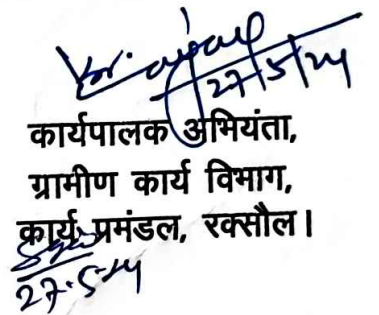 27/5/24
कार्यपालक अभियंता,
ग्रामीण कार्य विभाग,
कार्य प्रमंडल, रक्सौल।
27.5.24